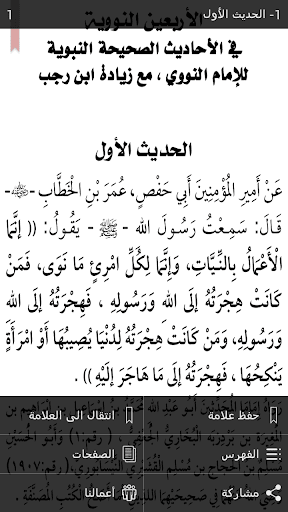 1- الحديث الأول
1
الأربعين النووية
في الأحاديث الصحيحة النبوية
للإمام النووي ، مع زيادة ابن رجب
الحديث الأول
عَنْ أَمِيرِ المُؤْمِنِينَ أَبِي حَفْصٍ، عُمَرَ بْنِ الْخَطَّابِ -
قَالَ: سَمِعْتُ رَسُولَ الله -ﷺ- يَقُولُ: (( إِنَّمَا
الْأَعْمَالُ بِالنِّيَّاتِ، وَإِنَّمَا لِكُلِّ امْرِئٍ مَا نَوَى، فَمَنْ
كَانَتْ هِجْرَتُهُ إِلَى الله وَرَسُولِهِ ، فَهِجْرَتُهُ إِلَى الله
وَرَسُولِهِ، وَمَنْ كَانَتْ هِجْرَتُهُ لِدُنْيَا يُصِيبُهَا أَوْ امْرَأَةٍ
يَنْكِحُهَا ، فَهِجْرَتُهُ إِلَى مَا هَاجَرَ إِلَيْهِ )) .
حفظ علامة
انتقال الى العلامة
الفهرس
الصفحات
مشاركة
أعمالنا